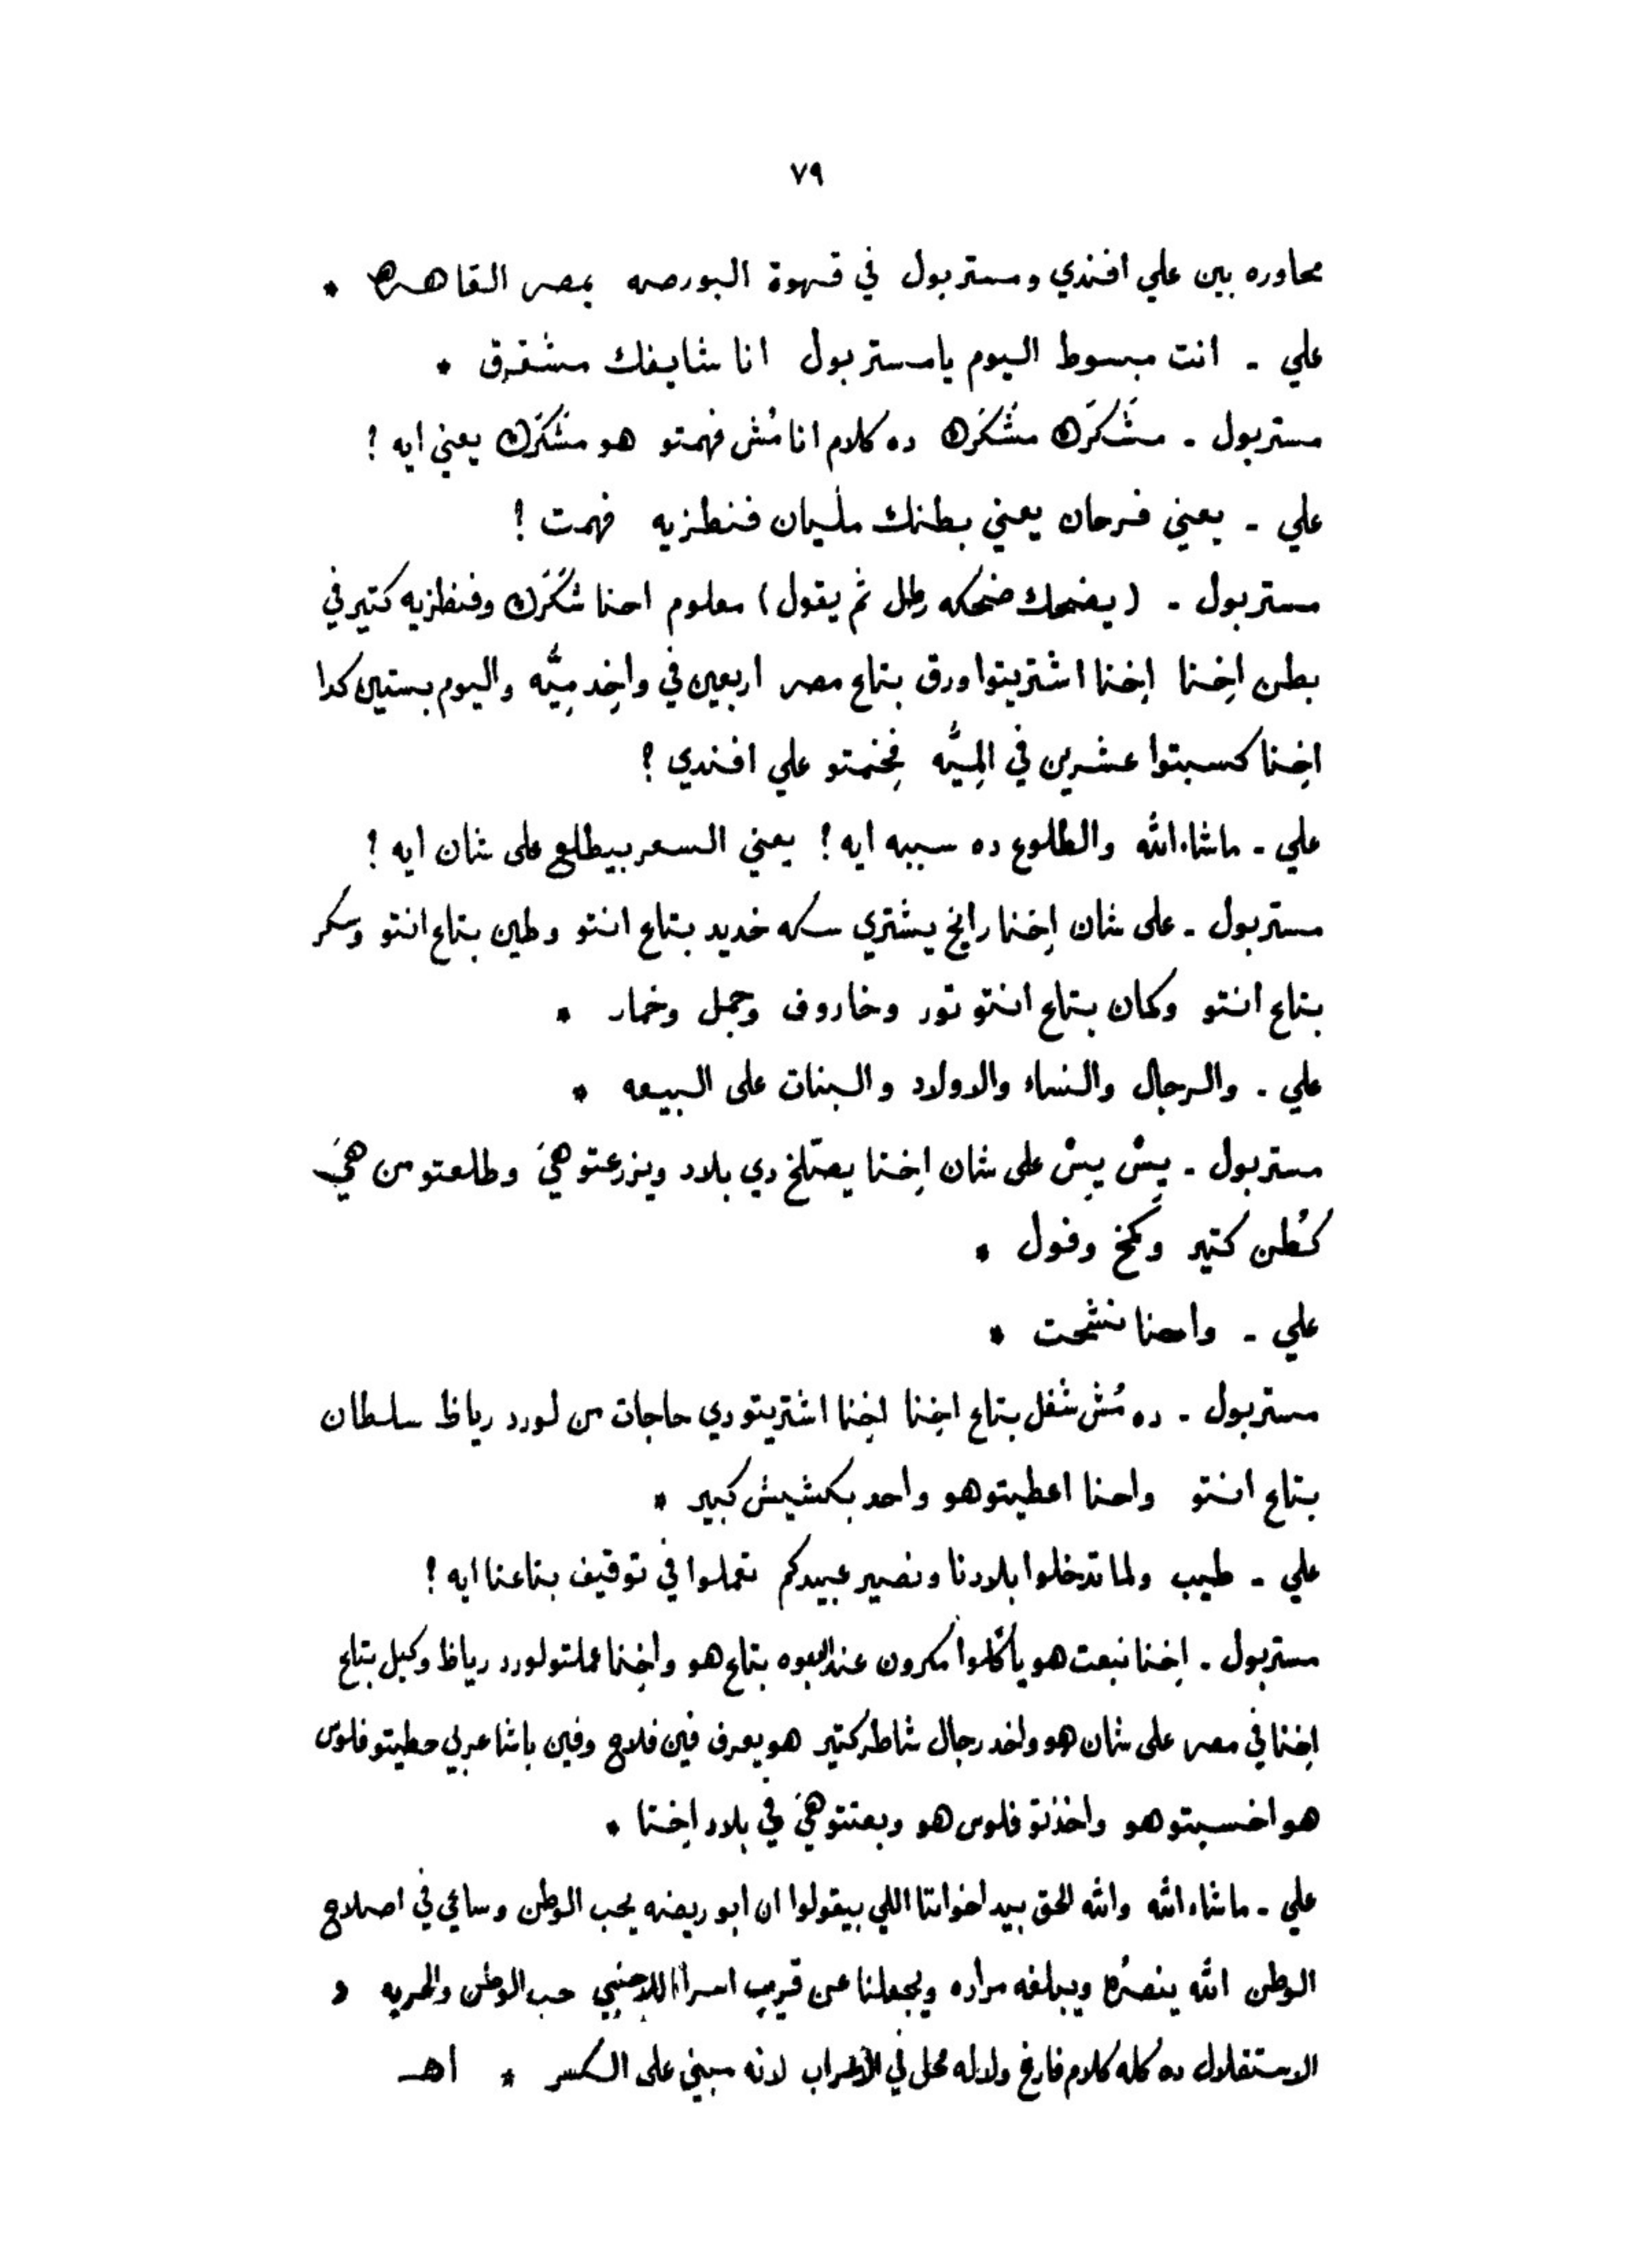 ٧٩
محاوره بين علي افندي ومستر بول في قهوة البورصه بمصر القاهره *
علي - انت مبسوط اليوم يا مستر بول انا شايفك مشقرق *
مستر بول - مشَكرَك مشَكرَك ده كلام انا مُش فهمتو هو مشَكرَك يعني ايه ؟
علي - يعني فرحان يعني بطنك مليان فنطزيه فهمت !
مستر بول - (يضحك ضحكه رطل ثم يقول) معلوم احنا شَكرَك وفنطزيه كتير في
بطن اِخنا اِخنا اشتريتوا ورق بتاع مصر اربعين في واخِد مِيَّه واليوم بستين كدا
اِخنا كسبتوا عشرين في المِيَّه فِخمتو علي افندي ؟
علي - ماشاء الله والطلوع ده سببه ايه ! يعني السعر بيطلع على شان ايه ؟
مستر بول - على شان اِخنا رايخ يشتري سكه خديد بتاع انتو وطين بتاع انتو وسكر
بتاع انتو وكمان بتاع انتو تور وخاروف وجمل وخمار *
علي - والرجال والنساء والاولاد والبنات على البيعه *
مستر بول - يِسْ يِسْ على شان اِخنا يصلّخ دي بلاد ويزرعتو هيَ وطلعتو من هيَ
كُطن كتير وكمخ وفول *
علي - واحنا نشحت *
مستر بول - ده مُش شغل بتاع اِخنا اِخنا اشتريتو دي حاجات من لورد رياظ سلطان
بتاع انتو واحنا اعطيتو هو واحد بكشيش كبير *
علي - طيب ولما تدخلوا بلادنا ونصير عبيدكم تعملوا في توقيف بتاعنا ايه ؟
مستر بول - اِخنا نبعت هو يأكلوا مكرون عند ابوه بتاع هو واخِنا عملتو لورد رياظ وكيل بتاع
اِخنا في مصر على شان هو واخد رجال شاطر كتير هو يعرف فين فلاح وفين باشا عربي حطيتو فلوس
هو اخسبتو هو واخذتو فلوس هو وبعتتو هيَ في بلاد اِخنا *
علي - ماشاء الله والله الحق بيد اخواتنا اللي بيقولوا ان ابو ريضه يحب الوطن وساعي في اصلاح
الوطن الله ينصرُه ويبلغه مراده ويجعلنا عن قريب اسرا للاجنبي حب الوطن والحريه و
الاستقلال ده كله كلام فارغ ولا له محل في الاعراب لانه مبني على الكسر * اهـ